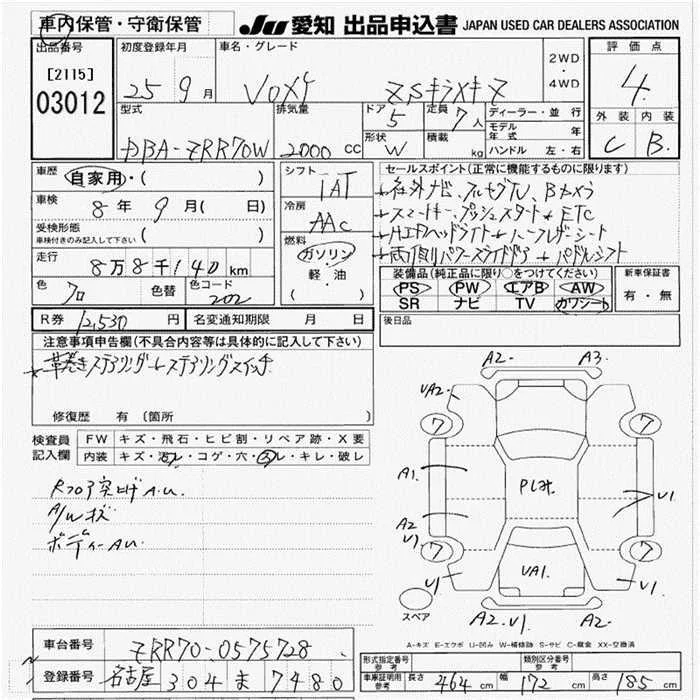 車内保管・守衛保管
JU 愛知 出品申込書 JAPAN USED CAR DEALERS ASSOCIATION
出品番号
[2115]
03012
初度登録年月
25 9月
車名・グレード
VOXY ZSキラメキZ
2WD・4WD
評価点
4
外装 内装
C B
型式
DBA-ZRR70W
排気量
2000 cc
ドア
5
形状
W
定員
7人
積載 kg
ディーラー・並行
モデル年式 年
ハンドル 左・右
車歴
自家用・( )
車検
8年 9月( 日)
受検形態
車検付きのみ記入して下さい ( )
走行
8万8千140km
色
クロ 色替
色コード
202
シフト
IAT
冷房
AAC
燃料
ガソリン・軽・油
( )
セールスポイント(正常に機能するものに限ります)
社外ナビ、フルセグTV、Bカメラ
スマートキー、プッシュスタート ETC
HIDヘッドライト ハーフレザーシート
両側パワースライドドア パドルシフト
装備品(純正品に限り○をつけてください)
PS PW エアB AW
SR ナビ TV カワシート
新車保証書
有・無
後日品
R券 12,530円
名変通知期限 月 日
注意事項申告欄(不具合内容等は具体的に記入して下さい)
革巻きステアリング ステアリングスイッチ
修復歴 有 〔箇所
検査員記入欄
FW キズ・飛石・ヒビ割・リペア跡・X要
内装 キズ・汚レ・コゲ・穴・スレ・キレ・破レ
Rフロア突上げA.U.
A/Wキズ
ボディーAU
A2・ A3・
UA2・
7 7
A1・
Plat.
U1
A2
U1
7 7
U1 UA1. U1
A2・U1 A2・
スペア
A-キズ E-エクボ U-凹み W-補修跡 S-サビ C-腐食 XX-交換済
車台番号 ZRR70-0575728
登録番号 名古屋 304 ま 7480
形式指定番号 参考
類別区分番号 参考
車庫証明用参考 長さ 464 cm 幅 172 cm 高さ 185 cm